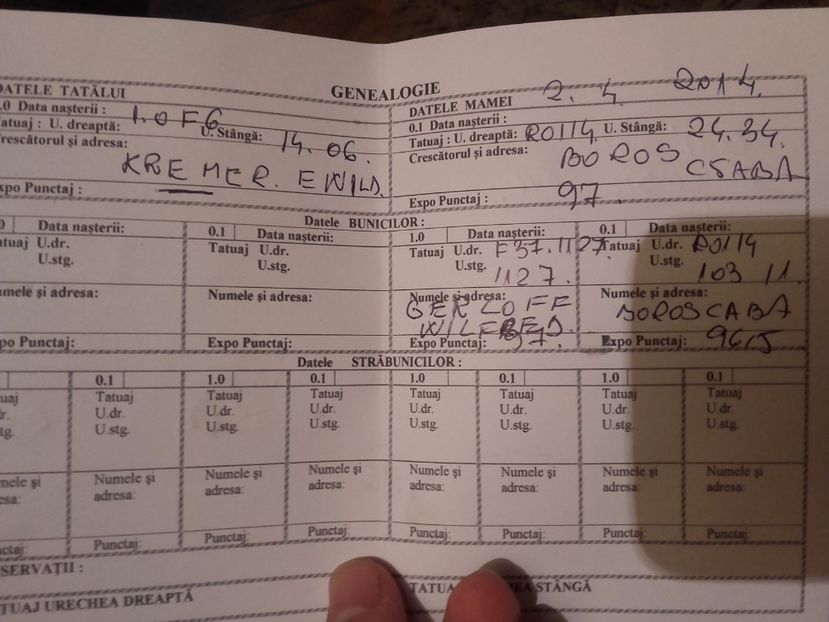 GENEALOGIE
DATELE TATĂLUI
.0 Data nașterii :
Tatuaj : U. dreaptă: 1.0 F6 U. Stângă: 14.06.
Crescătorul și adresa:
KREMER. EWILD.
Expo Punctaj :
DATELE MAMEI 2. 4. 2014.
0.1 Data nașterii :
Tatuaj : U. dreaptă: RO114. U. Stângă: 24.34.
Crescătorul și adresa: BOROS
CSABA
Expo Punctaj : 97.
Datele BUNICILOR :
Data nașterii:
Tatuaj U.dr.
U.stg.
Numele și adresa:
Expo Punctaj:
0.1 Data nașterii:
Tatuaj U.dr.
U.stg.
Numele și adresa:
Expo Punctaj:
1.0 Data nașterii:
Tatuaj U.dr. F37.1127.
U.stg. 1127.
Numele și adresa:
GERLOFF
Expo Punctaj: 97.
0.1 Data nașterii:
Tatuaj U.dr. RO114
U.stg. 103 11.
Numele și adresa:
BOROS CABA
Expo Punctaj: 96,5
Datele STRĂBUNICILOR :
0.1 1.0 0.1 1.0 0.1 1.0 0.1
Tatuaj Tatuaj Tatuaj Tatuaj Tatuaj Tatuaj Tatuaj Tatuaj
U.dr. U.dr. U.dr. U.dr. U.dr. U.dr. U.dr. U.dr.
U.stg. U.stg. U.stg. U.stg. U.stg. U.stg. U.stg. U.stg.
Numele și Numele și Numele și Numele și Numele și Numele și Numele și Numele și
adresa: adresa: adresa: adresa: adresa: adresa: adresa: adresa:
Punctaj: Punctaj: Punctaj: Punctaj: Punctaj: Punctaj: Punctaj: Punctaj:
OBSERVAȚII :
TATUAJ URECHEA DREAPTĂ
TATUAJ URECHEA STÂNGĂ